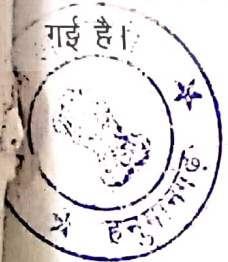 गई है।
हनुमानगढ़